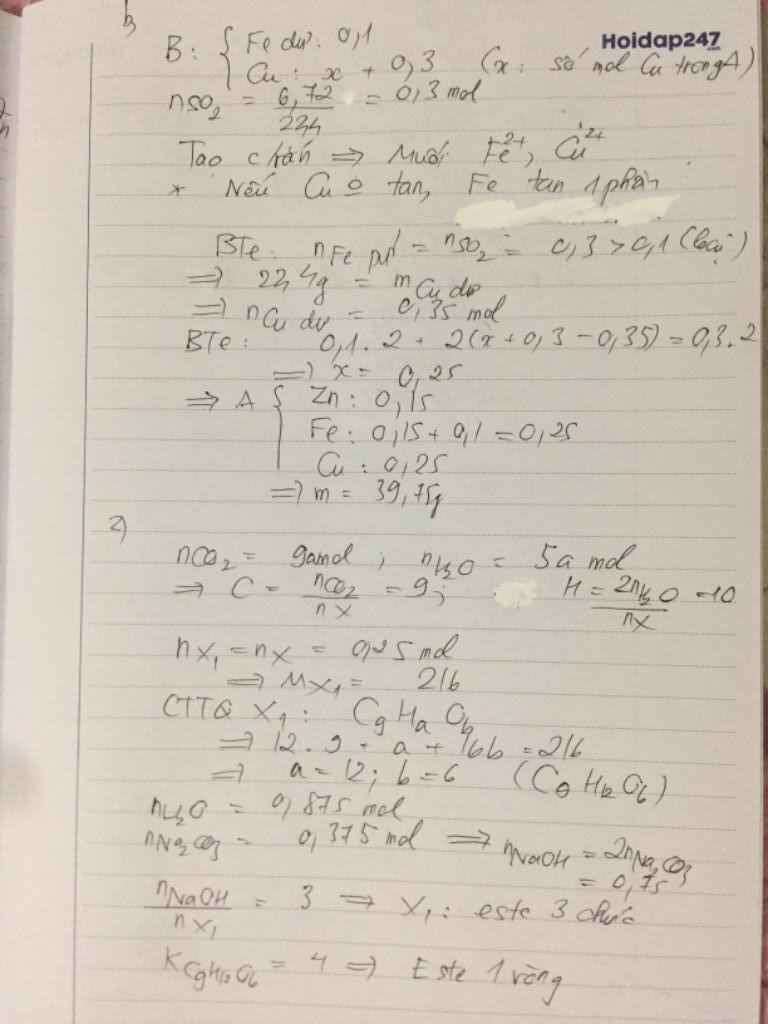 b,
Hoidap247
.com
B: { Fe dư: 0,1
Cu: x + 0,3 (x: số mol Cu trong A)
nSO2 = 6,72/22,4 = 0,3 mol
Tạo c rắn => Muối Fe2+, Cu2+
* Nếu Cu o tan, Fe tan 1 phần
BTe: nFe pứ = nSO2 = 0,3 > 0,1 (loại)
=> 22,4g = mCu dư
=> nCu dư = 0,35 mol
BTe: 0,1.2 + 2(x + 0,3 - 0,35) = 0,3.2
=> x = 0,25
=> A { Zn: 0,15
Fe: 0,15 + 0,1 = 0,25
Cu: 0,25
=> m = 39,75g
2)
nCO2 = 9amol ; nH2O = 5a mol
=> C = nCO2/nX = 9; H = 2nH2O/nX = 10
nX1 = nX = 0,25 mol
=> MX1 = 216
CTTQ X1: C9HaOb
=> 12.9 + a + 16b = 216
=> a = 12; b = 6 (C9H12O6)
nH2O = 0,875 mol
nNa2CO3 = 0,375 mol => nNaOH = 2nNa2CO3
= 0,75
nNaOH/nX1 = 3 => X1: este 3 chức
KC9H12O6 = 4 => Este 1 vòng